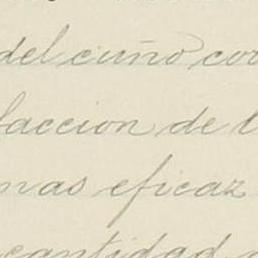 del cuño cor
faccion de l
mas eficaz
cantidad